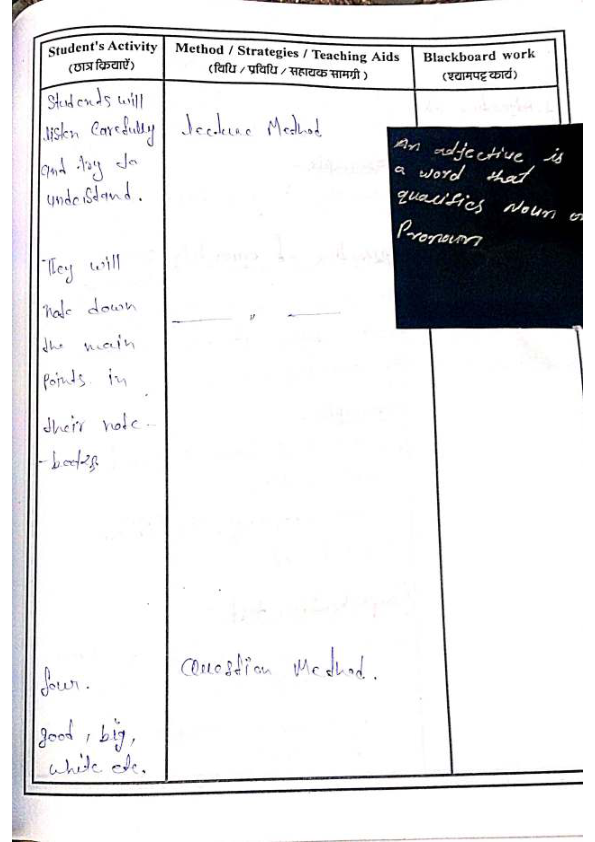 Student's Activity
(छात्र क्रियाएँ)
Method / Strategies / Teaching Aids
(विधि / प्रविधि / सहायक सामग्री)
Blackboard work
(श्यामपट्ट कार्य)
Students will
listen carefully
and try to
understand.
Lecture Method
An adjective is
a word that
qualifies Noun or
Pronoun
They will
note down
the main
points in
their note-
-books
——— " ———
four.
good, big,
white etc.
Question Method.